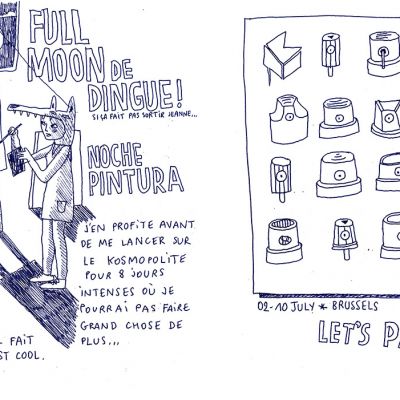 FULL
MOON DE
DINGUE!
SI ÇA FAIT PAS SORTIR JEANNE...
NOCHE
PINTURA
J'EN PROFITE AVANT
DE ME LANCER SUR
LE KOSMOPOLITE
POUR 8 JOURS
INTENSES OÙ JE
POURRAI PAS FAIRE
GRAND CHOSE DE
PLUS...
FAIT
ST COOL.
02-10 JULY * BRUSSELS
LET'S PA